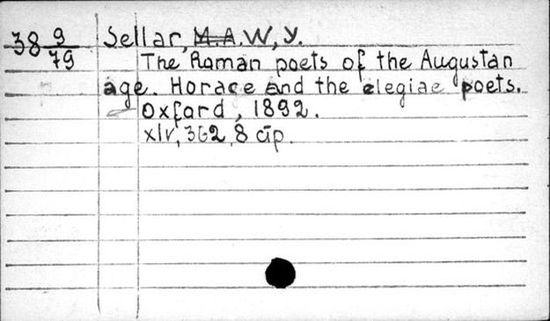 38 9/79 Sellar, M.A. W, Y.
The Roman poets of the Augustan
age. Horace and the elegiae poets.
Oxford, 1892.
XLV, 362, 8 ctp.